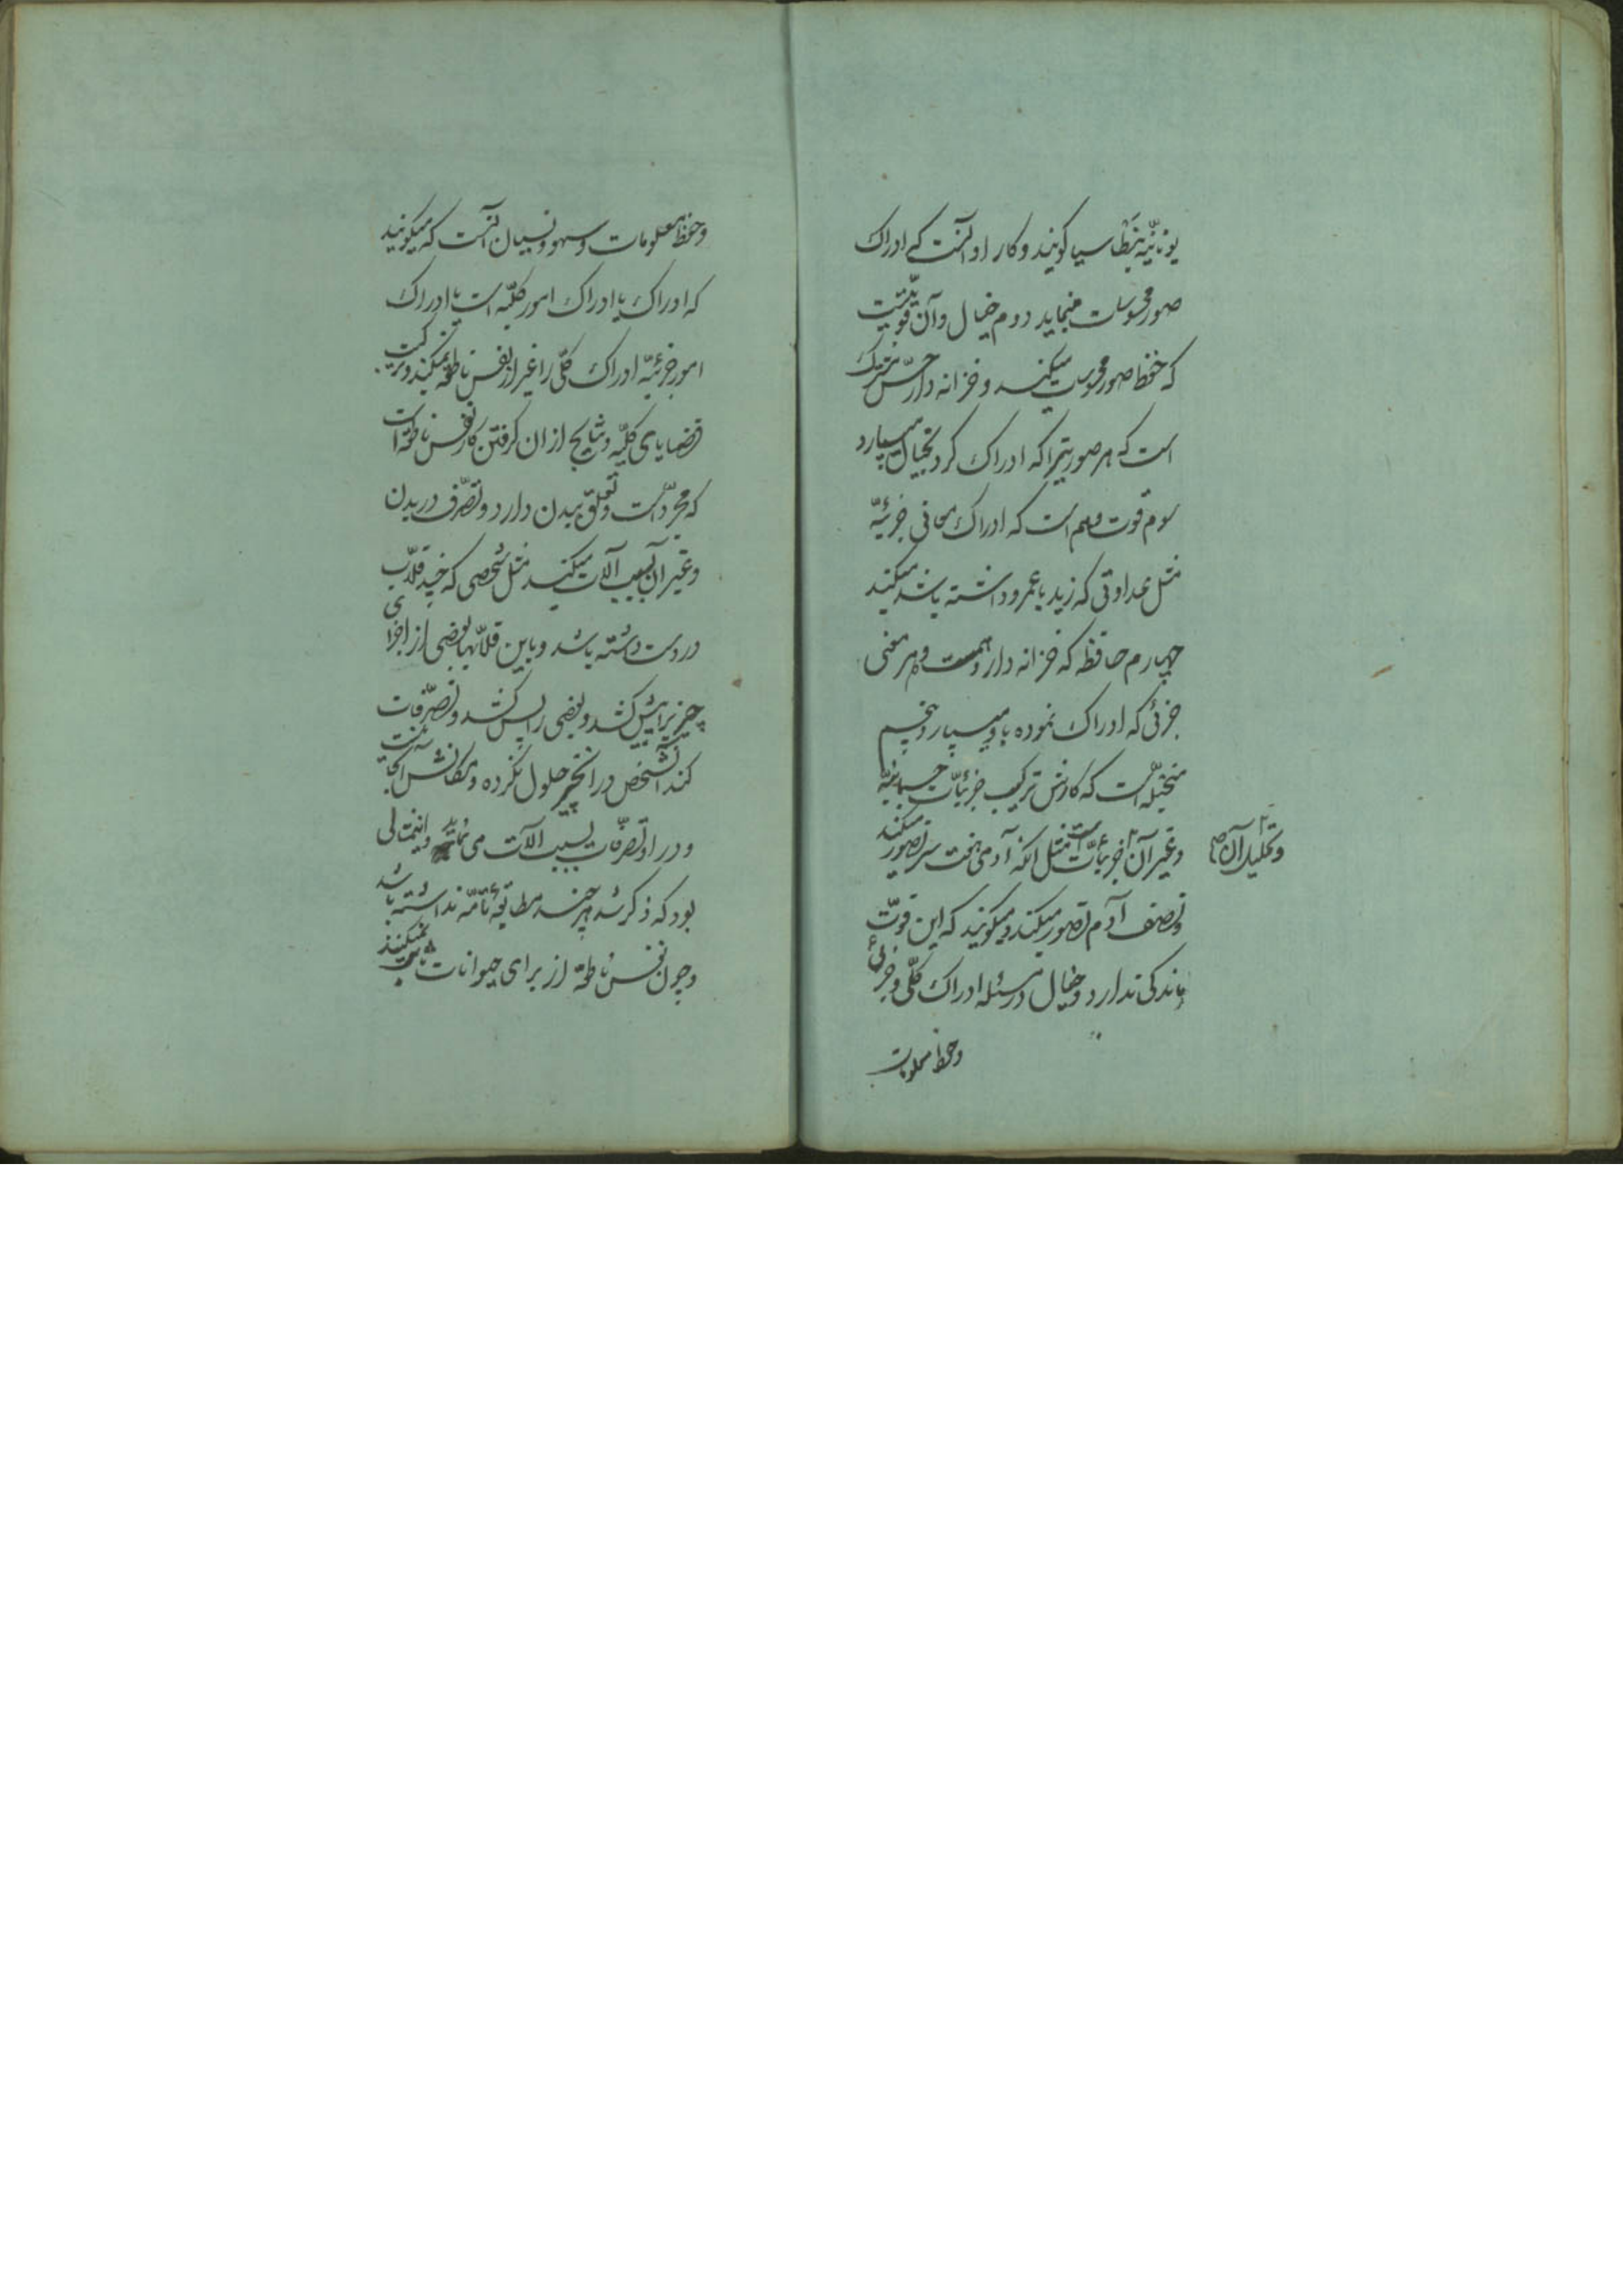 یونانیّه بنطاسیا کویند و کار او آنست که ادراک
صور محسوسات مینماید دوم خیال و آن قوّتیست
که حفظ صور محسوسات میکند و خزانه دار حسّ مشترک
است که هر صورتیرا که ادراک کرد بخیال میسپارد
سوم قوت وهم است که ادراک معانی جزئیّه
مثل عداوتی که زید با عمرو داشته باشد میکند
چهارم حافظه که خزانه دار وهمست و هر معنی
جزئی که ادراک نموده باو میسپارد پنجم
متخیّله است که کارش ترکیب جزئیّات جسمانیّه
و غیر آن جزئیّات است مثل انکه آدمی هفت سر تصور میکند
و تحلیل آن
و نصف آدم تصور میکند و میکویند که این قوّت
ماندکی ندارد و خیال در مسئله ادراک کلّی و جزئی
و حفظ معلومات
و حفظ معلومات و سهو و نسیان آنست که میکویند
که ادراک یا ادراک امور کلیّه است یا ادراک
امور جزئیّه ادراک کلّی را غیر از نفس ناطقه نمیکند و ترکیب
قضایای کلیّه و نتایج از ان کرفتن کار نفس ناطقه است
که مجرّد است و تعلّق ببدن دارد و تصرّف در بدن
و غیر ان بسبب آلات میکند مثل شخصی که چند قلّاب
در دست داشته باشد و باین قلّابها بعضی از اجزای
چیزیرا پیش کشد و بعضی را پس کشد و تصرّفات
کند آنشخص در انچیز حلول نکرده و مکانش آنجا نیست
و در او تصرّفات بسبب آلات می نماید و اینمثالی
بود که ذکر شد هر چند مطابقهٔ تامّه نداشته باشد
و چون نفس ناطقه از برای حیوانات نمیکنند